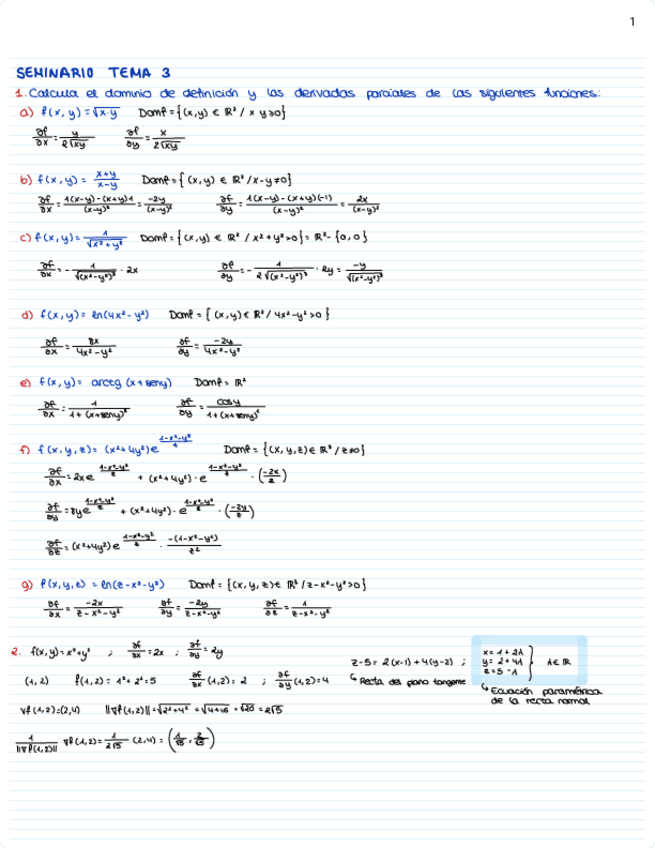 1
SEMINARIO TEMA 3
1. Calcula el dominio de definición y las derivadas parciales de las siguientes funciones:
a) f(x,y) = √x·y Domf = {(x,y) ∈ ℝ² / x y ≥ 0}
∂f/∂x = y/2√xy ∂f/∂y = x/2√xy
b) f(x,y) = x+y/x-y Domf = {(x,y) ∈ ℝ² / x-y ≠ 0}
∂f/∂x = 1(x-y)-(x+y)1/(x-y)² = -2y/(x-y)² ∂f/∂y = 1(x-y)-(x+y)(-1)/(x-y)² = 2x/(x-y)²
c) f(x,y) = 1/√x²+y² Domf = {(x,y) ∈ ℝ² / x²+y²>0} = ℝ² - {0,0}
∂f/∂x = - 1/√(x²-y²)³ · 2x ∂f/∂y = - 1/2√(x²-y²)³ · 2y = -y/√(x²-y²)³
d) f(x,y) = ln(4x²-y²) Domf = {(x,y) ∈ ℝ² / 4x²-y²>0}
∂f/∂x = 8x/4x²-y² ∂f/∂y = -2y/4x²-y²
e) f(x,y) = arctg (x+seny) Domf = ℝ²
∂f/∂x = 1/1+(x+seny)² ∂f/∂y = cosy/1+(x+seny)²
f) f(x,y,z) = (x²+4y²)e Domf = {(x,y,z) ∈ ℝ³ / z≠0}
∂f/∂x = 2xe + (x²+4y²)·e · (-2x/z)
∂f/∂y = 8ye + (x²+4y²)·e · (-2y/z)
∂f/∂z = (x²+4y²)e · -(1-x²-y²)/z²
g) f(x,y,z) = ln(z-x²-y²) Domf = {(x,y,z) ∈ ℝ³ / z-x²-y²>0}
∂f/∂x = -2x/z-x²-y² ∂f/∂y = -2y/z-x²-y² ∂f/∂z = 1/z-x²-y²
2. f(x,y) = x²+y² ; ∂f/∂x = 2x ; ∂f/∂y = 2y
(1,2) f(1,2) = 1²+2² = 5 ∂f/∂x (1,2) = 2 ; ∂f/∂y (1,2) = 4
z-5 = 2(x-1)+4(y-2) ;
Recta del plano tangente
x = 1+2λ
y = 2+4λ
z = 5-λ
λ ∈ ℝ
Ecuación paramétrica
de la recta normal
∇f(1,2) = (2,4) ||∇f(1,2)|| = √2²+4² = √4+16 = √20 = 2√5
1/||∇f(1,2)|| ∇f(1,2) = 1/2√5 (2,4) = (1/√5, 2/√5)